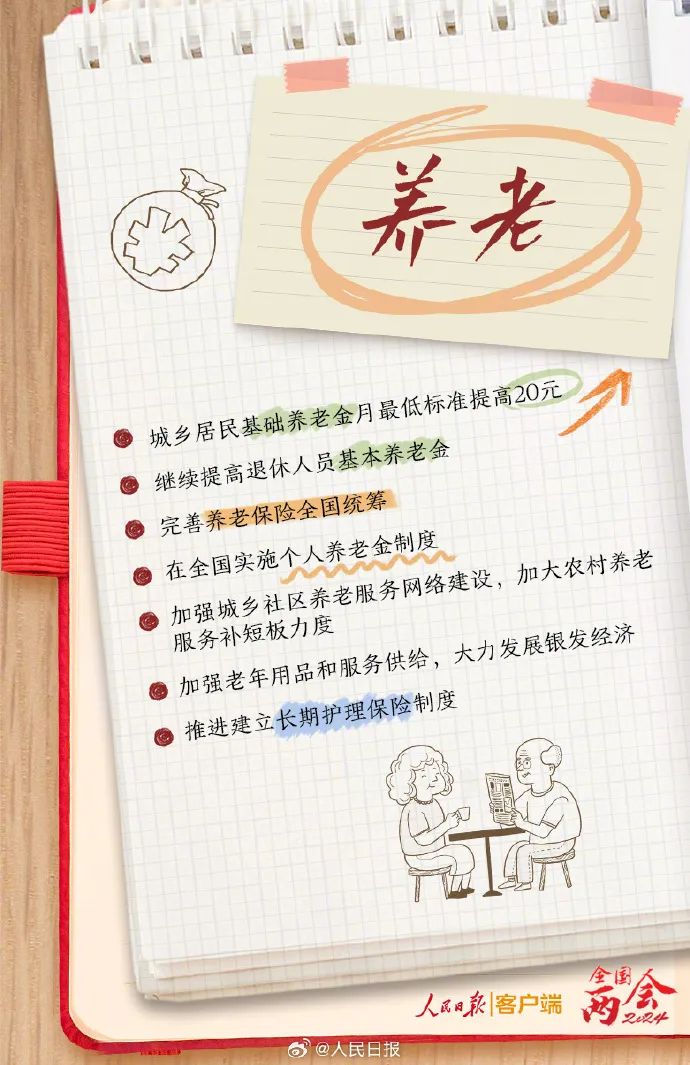 养老
城乡居民基础养老金月最低标准提高20元
继续提高退休人员基本养老金
完善养老保险全国统筹
在全国实施个人养老金制度
加强城乡社区养老服务网络建设，加大农村养老
服务补短板力度
加强老年用品和服务供给，大力发展银发经济
推进建立长期护理保险制度
人民日报|客户端
全国
两会
2024
@人民日报